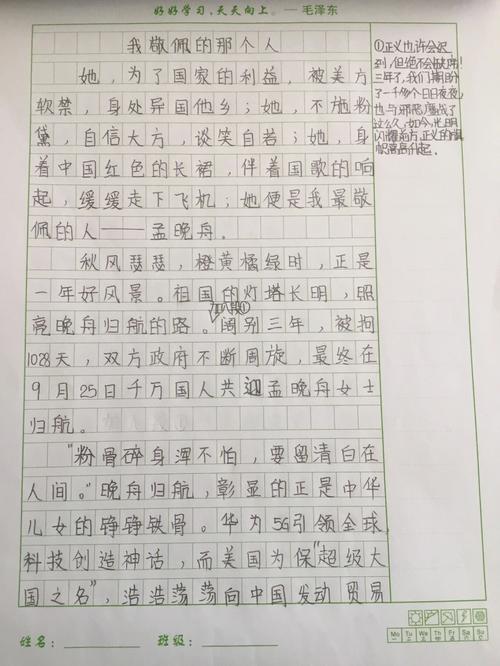 好好学习,天天向上。— 毛泽东
我敬佩的那个人
她，为了国家的利益，被美方
软禁，身处异国他乡；她，不施粉
黛，自信大方，谈笑自若；她，身
着中国红色的长裙，伴着国歌的响
起，缓缓走下飞机；她便是我最敬
佩的人——孟晚舟。
秋风瑟瑟，橙黄橘绿时，正是
一年好风景。祖国的灯塔长明，照
亮晚舟归航的路。阔别三年，被拘
1028天，双方政府不断周旋，最终在
9月25日千万国人共迎孟晚舟女士
归航。
"粉骨碎身浑不怕，要留清白在
人间。"晚舟归航，彰显的正是中华
儿女的铮铮铁骨。华为5G引领全球
科技创造神话，而美国为保"超级大
国之名"，浩浩荡荡向中国发动贸易
①正义也许会迟
到，但绝不会缺席！
三年了，我们期盼
了一千多个日日夜夜，
也与邪恶鏖战了
这么久，如今，光明
闪耀前方，正义的旗
帜高高升起。
姓名：
班级：
Mo Tu We Th Fr Sa Su